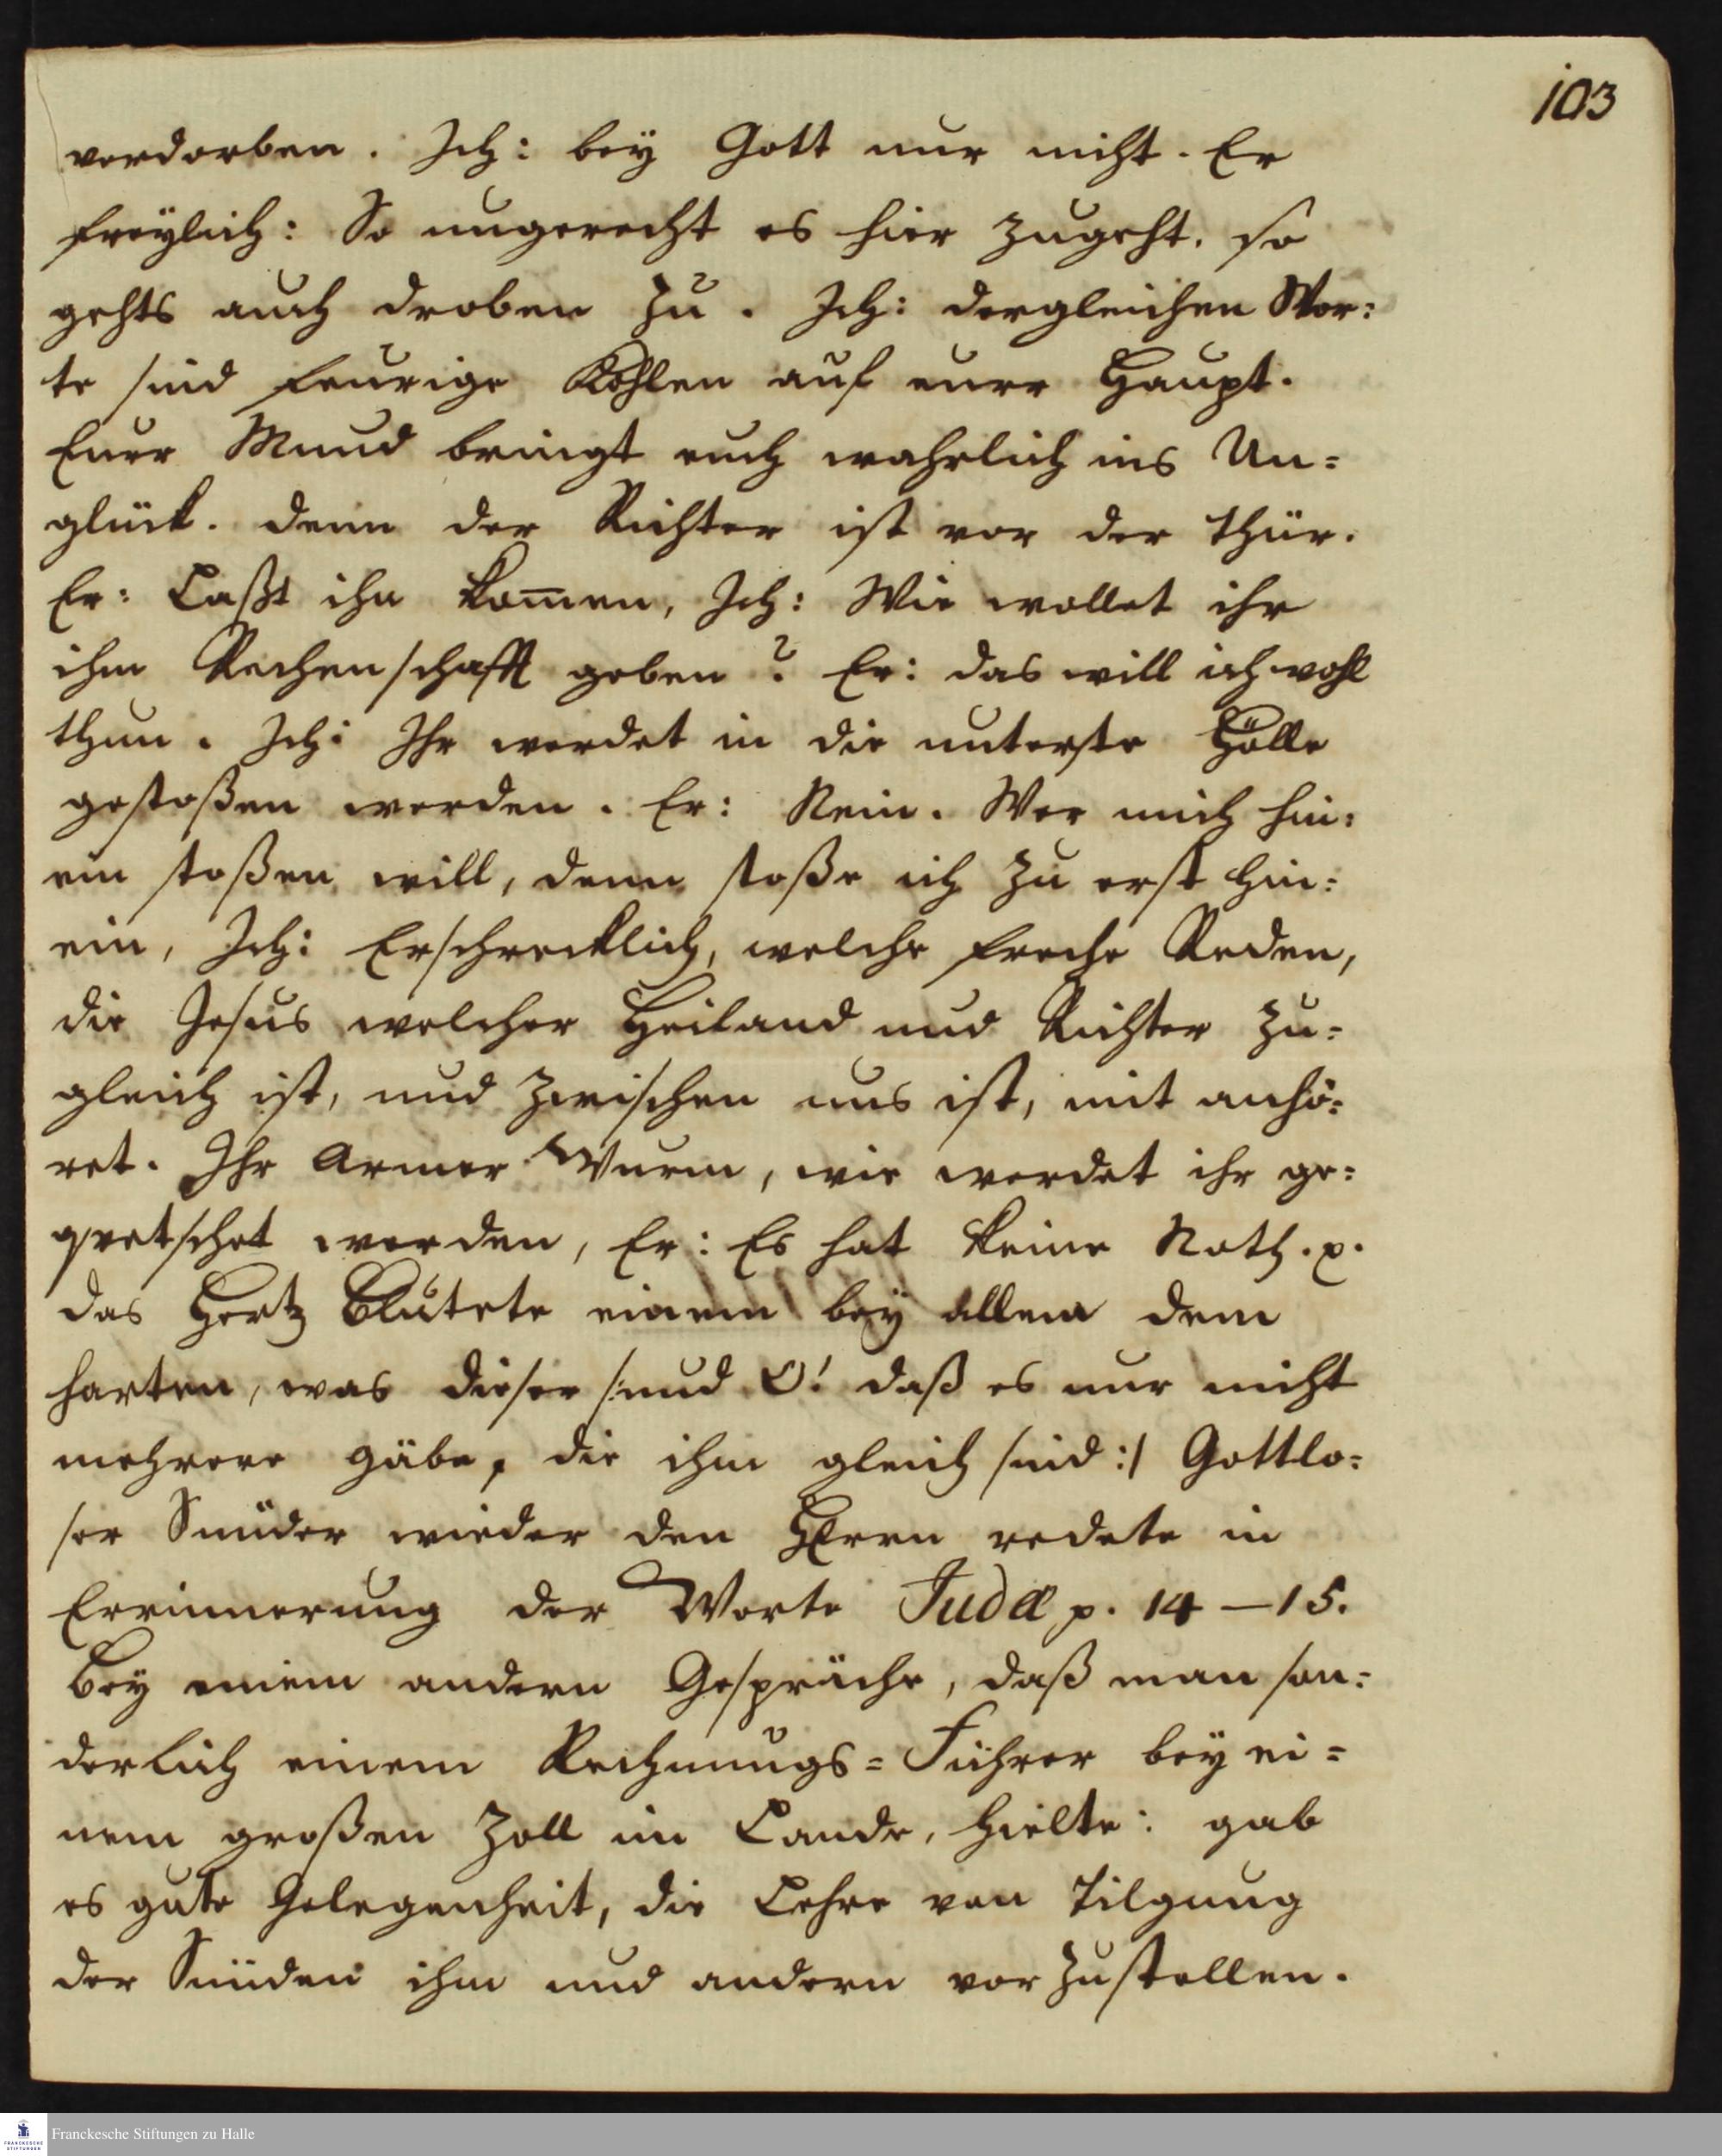 103
verdorben. Ich: bey Gott nur nicht. Er
freylich: So ungerecht es hier zugeht. so
gehts auch droben zu. Ich: dergleichen Wor:
te sind feurige Kohlen auf eure Haupt.
Euer Mund bringt euch wahrlich ins Un=
glück. denn der Richter ist vor der thür.
Er: Laßt ihn kom̅en, Ich: Wie wollet ihr
ihm Rechenschafft geben? Er: das will ich wohl
thun. Ich: Ihr werdet in die unterste Hölle
gestoßen werden. Er: Nein. Wer mich hin:
ein stoßen will, denn stoße ich zu erst hin:
ein, Ich: Erschrecklich, welche freche Reden,
die Jesus welcher Heiland und Richter zu=
gleich ist, und zwischen uns ist, mit anhö:
ret. Ihr armer Wurm, wie werdet ihr ge:
qvetschet werden, Er: Es hat keine Noth. p.
das Hertz blutete einem bey allem dem
harten, was dieser /:und O! daß es nur nicht
mehrere gäbe, die ihm gleich sind:/ Gottlo:
ser Sünder wieder den HErrn redete in
Errinnerung der Worte Judæ p. 14–15.
Bey einem andern Gespräche, daß man son:
derlich einem Rechnungs=Führer bey ei=
nem großen Zoll im Lande, hielte: gab
es gute Gelegenheit, die Lehre von Tilgung
der Sünden ihm und andern vorzustellen.
Franckesche Stiftungen zu Halle
FRANCKESCHE
STIFTUNGEN